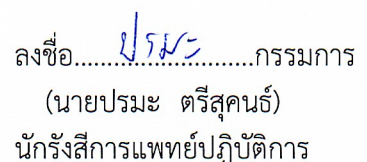 ลงชื่อ......ปรมะ......กรรมการ
(นายปรมะ ตรีสุคนธ์)
นักรังสีการแพทย์ปฏิบัติการ